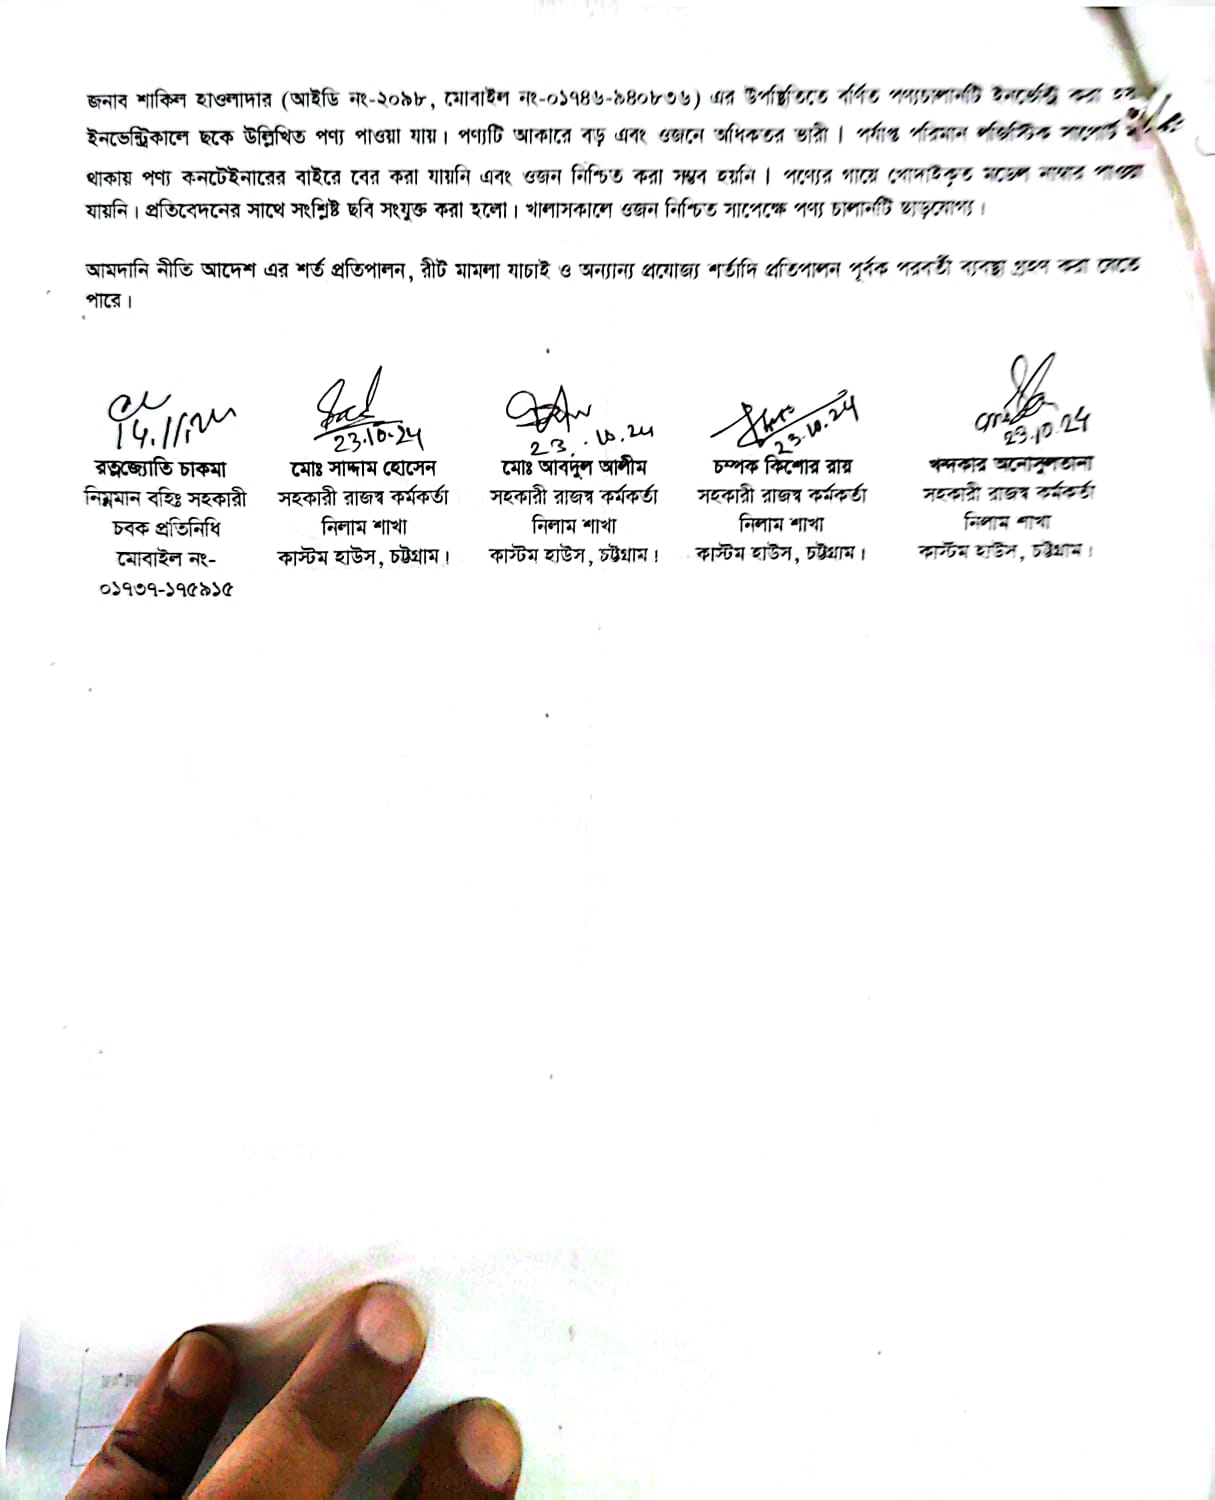 জনাব শাকিল হাওলাদার (আইডি নং-২০৯৮, মোবাইল নং-০১৭৪৬-৯৪০৮৩৬) এর উপস্থিতিতে বর্ণিত পণ্যচালানটি ইনভেন্ট্রি করা হয়
ইনভেন্ট্রিকালে ছকে উল্লিখিত পণ্য পাওয়া যায়। পণ্যটি আকারে বড় এবং ওজনে অধিকতর ভারী। পর্যাপ্ত পরিমান লজিস্টিক সাপোর্ট না
থাকায় পণ্য কনটেইনারের বাইরে বের করা যায়নি এবং ওজন নিশ্চিত করা সম্ভব হয়নি। পণ্যের গায়ে খোদাইকৃত মডেল নাম্বার পাওয়া
যায়নি। প্রতিবেদনের সাথে সংশ্লিষ্ট ছবি সংযুক্ত করা হলো। খালাসকালে ওজন নিশ্চিত সাপেক্ষে পণ্য চালানটি ছাড়যোগ্য।
আমদানি নীতি আদেশ এর শর্ত প্রতিপালন, রীট মামলা যাচাই ও অন্যান্য প্রযোজ্য শর্তাদি প্রতিপালন পূর্বক পরবর্তী ব্যবস্থা গ্রহণ করা যেতে
পারে।
23.10.24
23.10.24
23.10.24
23.10.24
রত্নজ্যোতি চাকমা
নিম্নমান বহিঃ সহকারী
চবক প্রতিনিধি
মোবাইল নং-
০১৭৩৭-১৭৫৯১৫
মোঃ সাদ্দাম হোসেন
সহকারী রাজস্ব কর্মকর্তা
নিলাম শাখা
কাস্টম হাউস, চট্টগ্রাম।
মোঃ আবদুল আলীম
সহকারী রাজস্ব কর্মকর্তা
নিলাম শাখা
কাস্টম হাউস, চট্টগ্রাম।
চম্পক কিশোর রায়
সহকারী রাজস্ব কর্মকর্তা
নিলাম শাখা
কাস্টম হাউস, চট্টগ্রাম।
খন্দকার
সহকারী রাজস্ব কর্মকর্তা
নিলাম শাখা
কাস্টম হাউস, চট্টগ্রাম।